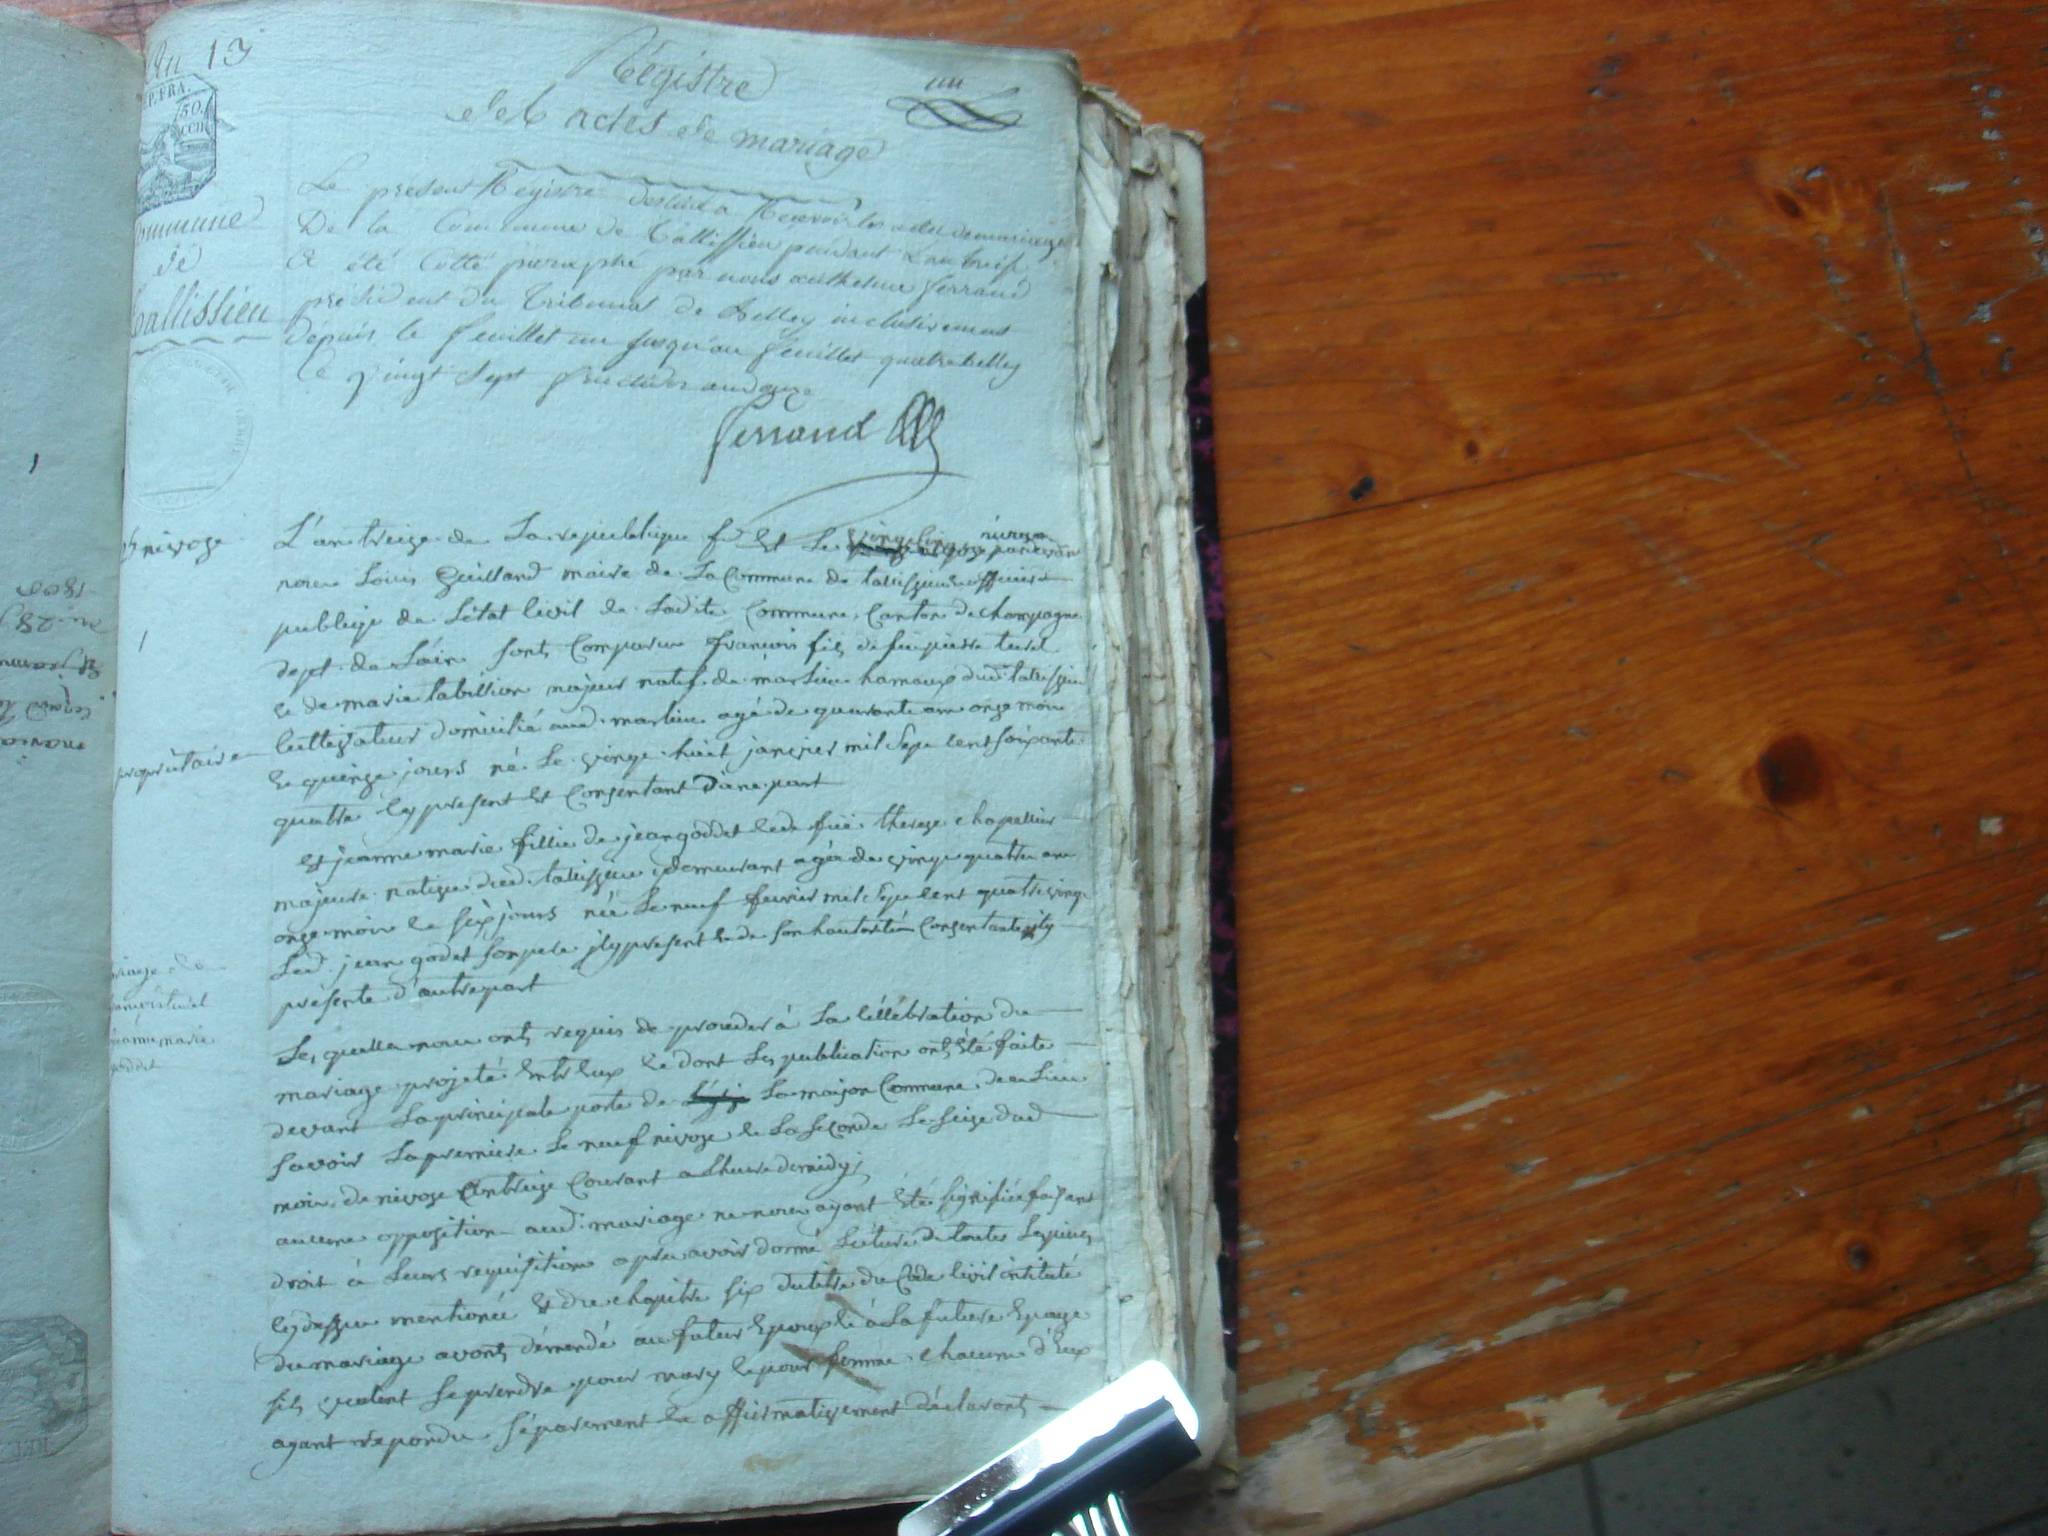 an 13
Régistre
des actes de mariage
un
REP. FRA.
50.
cen.
Commune
de
tallissieu
Le present Registre destiné a Recevoir les actes de mariage
De la Commune de tallissieu pendant L'an treize
a été Cotté paraphé par nous anthelme ferrand
président du Tribunal de Belley inclusivement
depuis le feuillet un jusqu'au feuillet quatre belley
le vingt sept fructidor an douze
ferrand
nivoze
L'an treize de La republique f.se Et Le nivoze pardevant
nous Louis Guilland maire de La Commune de tallissieu officier
publicq de L'état Civil de Ladite Commune, Canton de champagne
dept. de L'ain sont Comparus françois fils de feu pierre
et de marie tabillion majeur natif de marlieu hamaux dud. tallissieu
proprietaire
Cultivateur domicilié aud. marlieu agé de quarante ans onze mois
et quinze jours né Le vingt huit janvier mil Sept Cent Soixante
quatre Cy present Et Consentant D'une part
Et jeanne marie fillie de jean goddet et de fue thereze chapellier
majeure native dud. tallissieu y demeurant agée de vingt quatre ans
onze mois et six jours née Le neuf fevrier mil Sept Cent quatre vingt
Led. jean godet Son pere icy present et de Son hautorité Consentante icy
présente d'autre part
mariage de
jeanne marie
goddet
Les quelles nous onts requis de proceder à La Céllébration du
mariage projeté Entr'Eux et dont Les publication onts Eté faite
devant La principale porte de La maison Commune de ce Lieu
Savoir La premiere Le neuf nivoze et La Seconde Le Seize dud
mois de nivoze an treize Courant a L'heure de midy;
aucune opposition aud. mariage ne nous ayant Eté Signifiée faisant
droit à Leurs requisition apres avoir donné Lecture de toutes Les pieces
Cy dessus mentionée Et du chapitre six du titre du Code Civil intitulé
du mariage avons démendé au futur Epoux et à La future Epouze
S'ils veulent Se prendre pour mary et pour femme, chacun d'Eux
ayant repondu Séparement et affirmativement déclarons